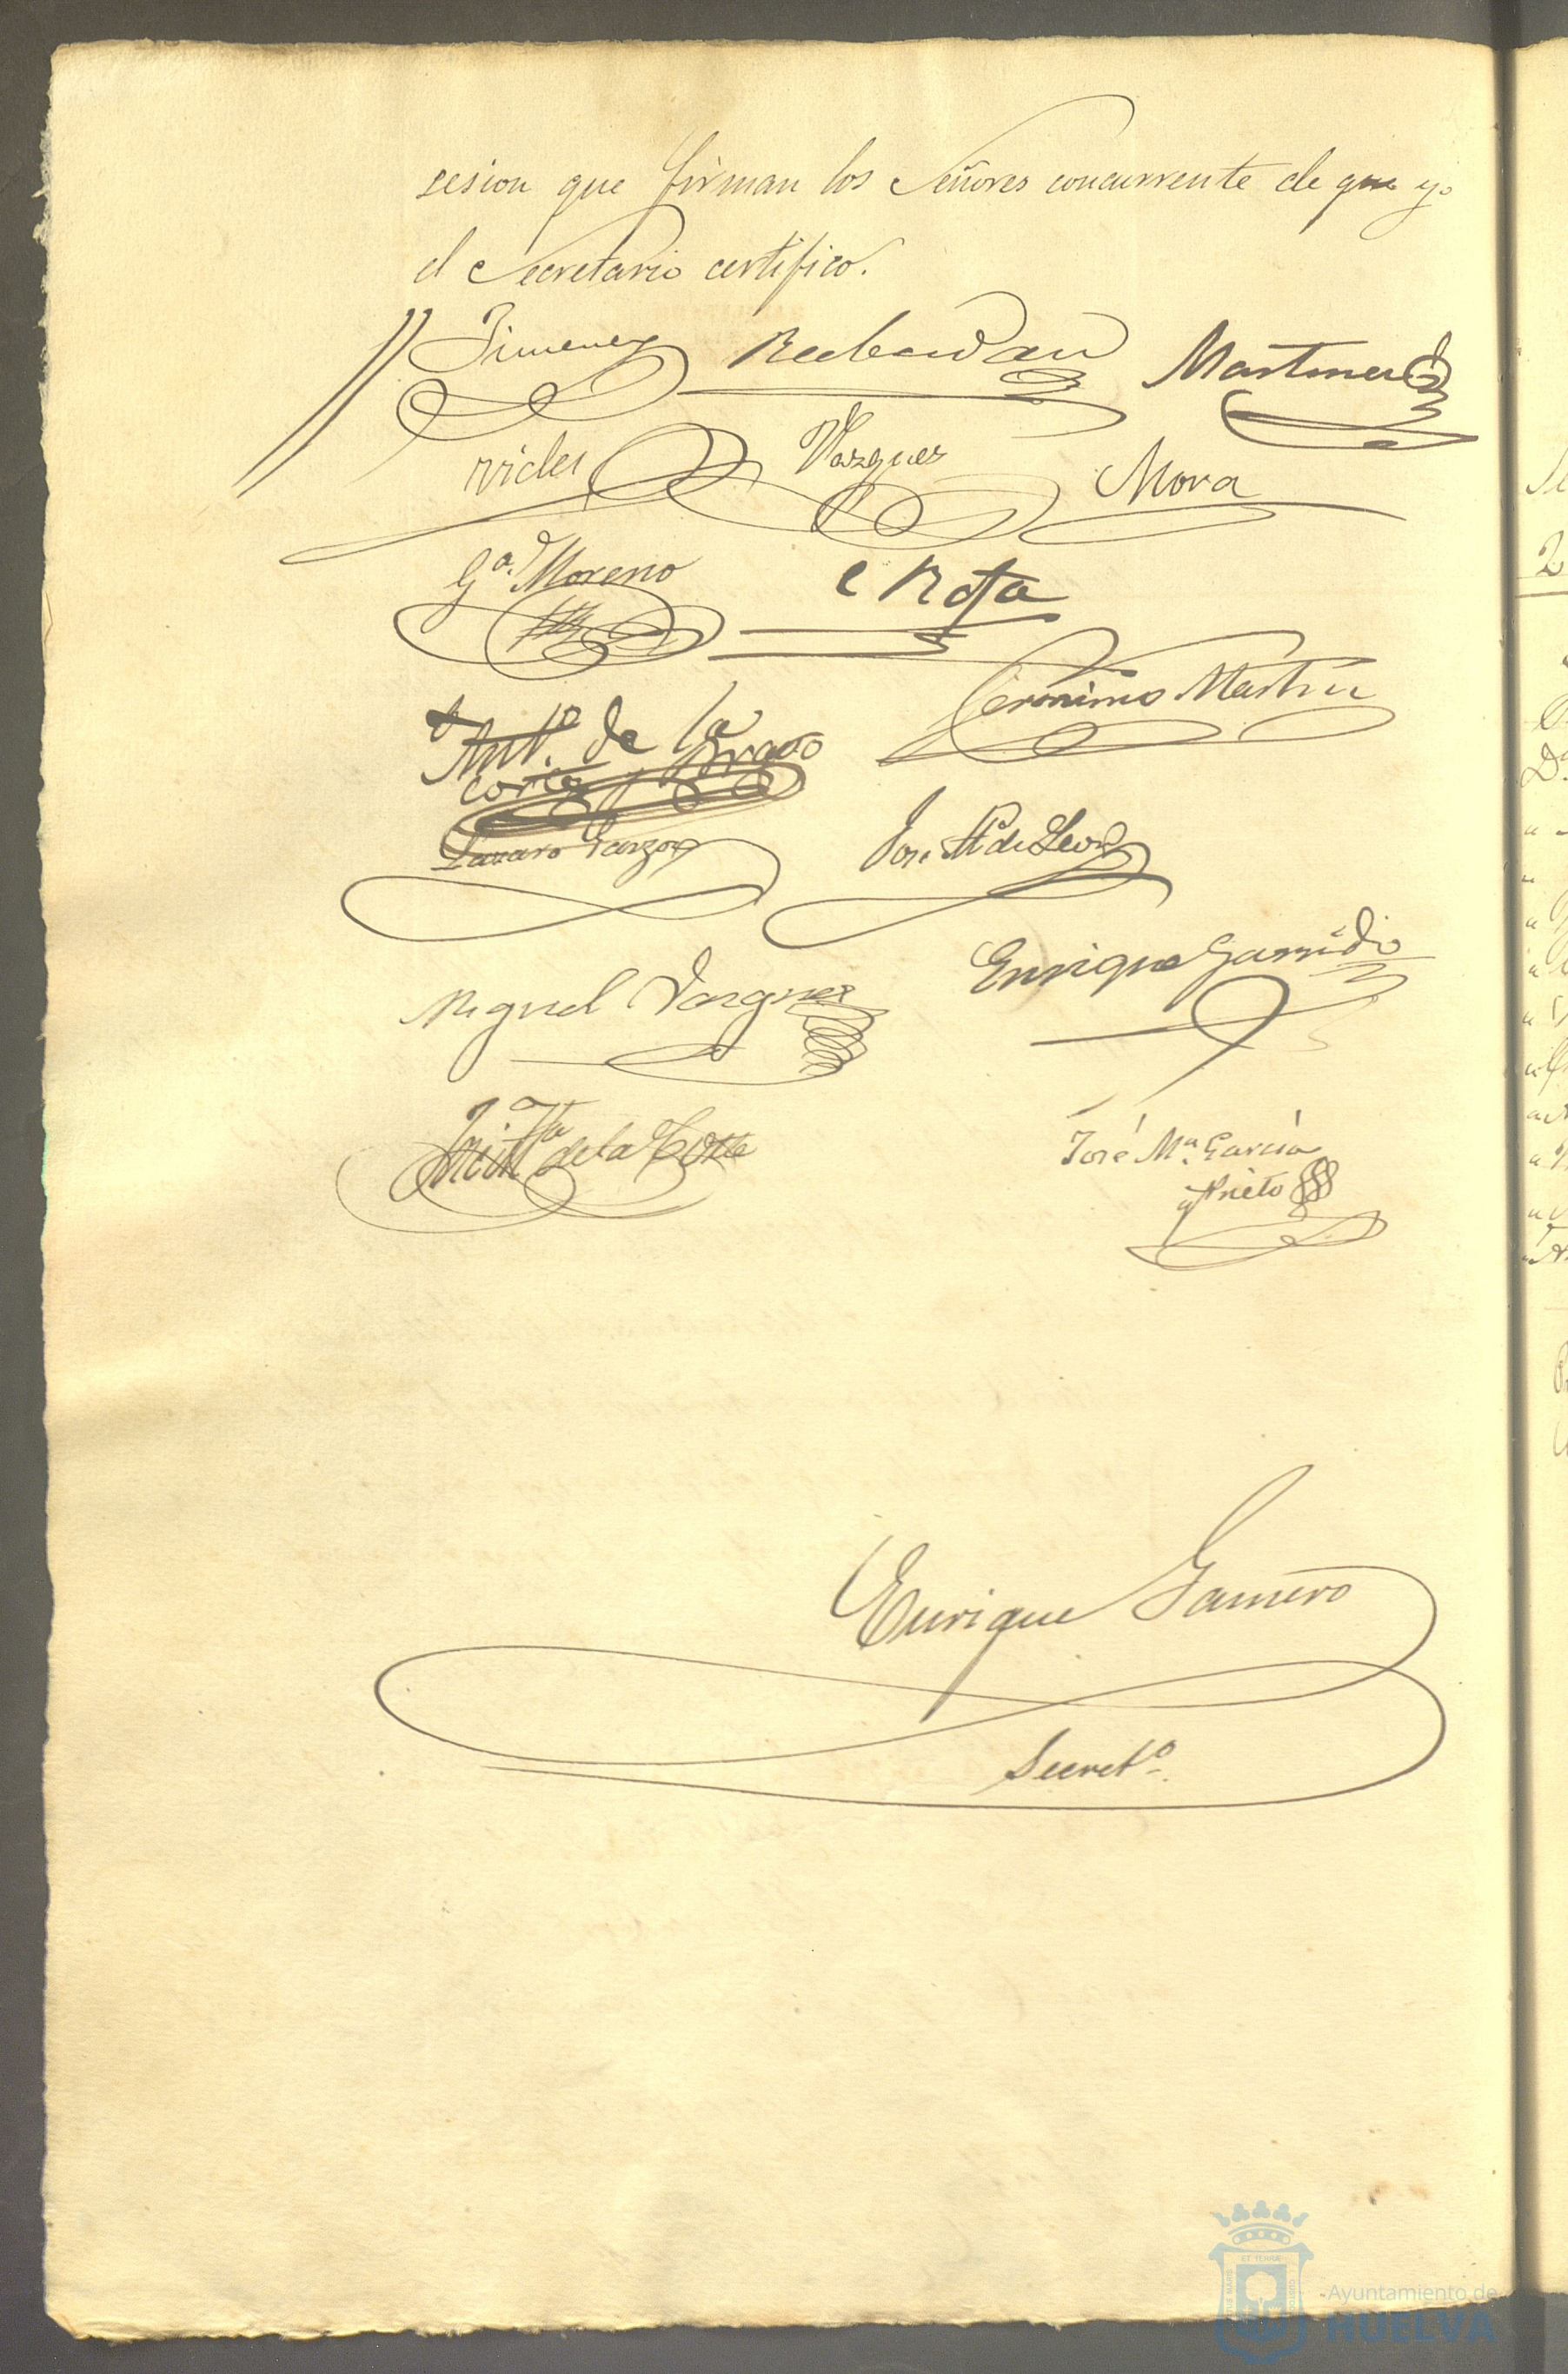 sesion que firman los Señores concurrente de que yo
el Secretario certifico.
Jimenez
Martinez
Vazquez
Mora
Gª. Moreno
Rofa
Antº. de la
Corte y Bravo
Jeronimo Martin
Lazaro Garzon
José Mª de Leon
Miguel Vazquez
Enrique Garrido
José Mª de la Corte
José Mª. Garcia
y Prieto
Enrique Gamero
Secretº.
Ayuntamiento de
HUELVA